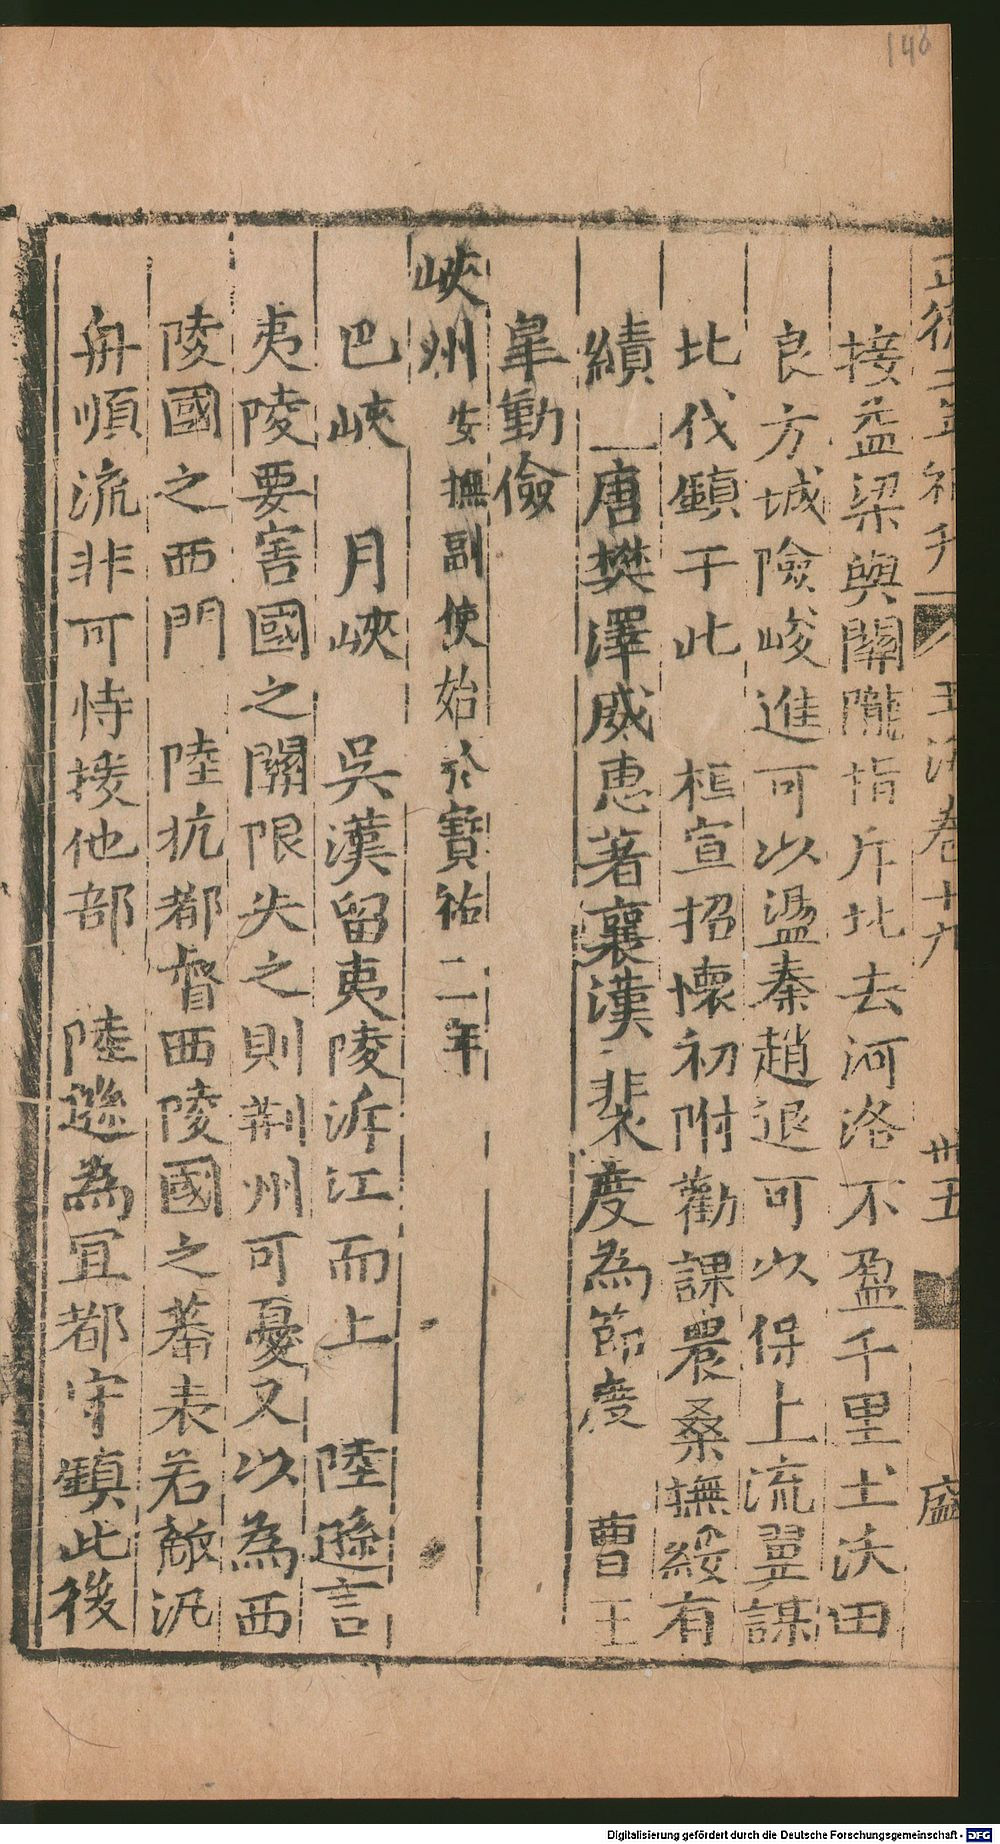 146
正德二年補刋 玉海卷十九 卅五 盛
接益梁與關隴指斥北去河洛不盈千里土沃田
良方城險峻進可以盪秦趙退可以保上流翼謀
北伐鎮于此 桓宣招懷初附勸課農桑撫綏有
績 唐樊澤威惠著襄漢 裴度為節度 曹王
皐勤儉
峽州安撫副使始於寶祐二年
巴峽 月峽 吳漢留夷陵泝江而上 陸遜言
夷陵要害國之關限失之則荆州可憂又以為西
陵國之西門 陸抗都督西陵國之蕃表若敵汎
舟順流非可恃援他部 陸遜為宜都守鎮此後
Digitalisierung gefördert durch die Deutsche Forschungsgemeinschaft - DFG